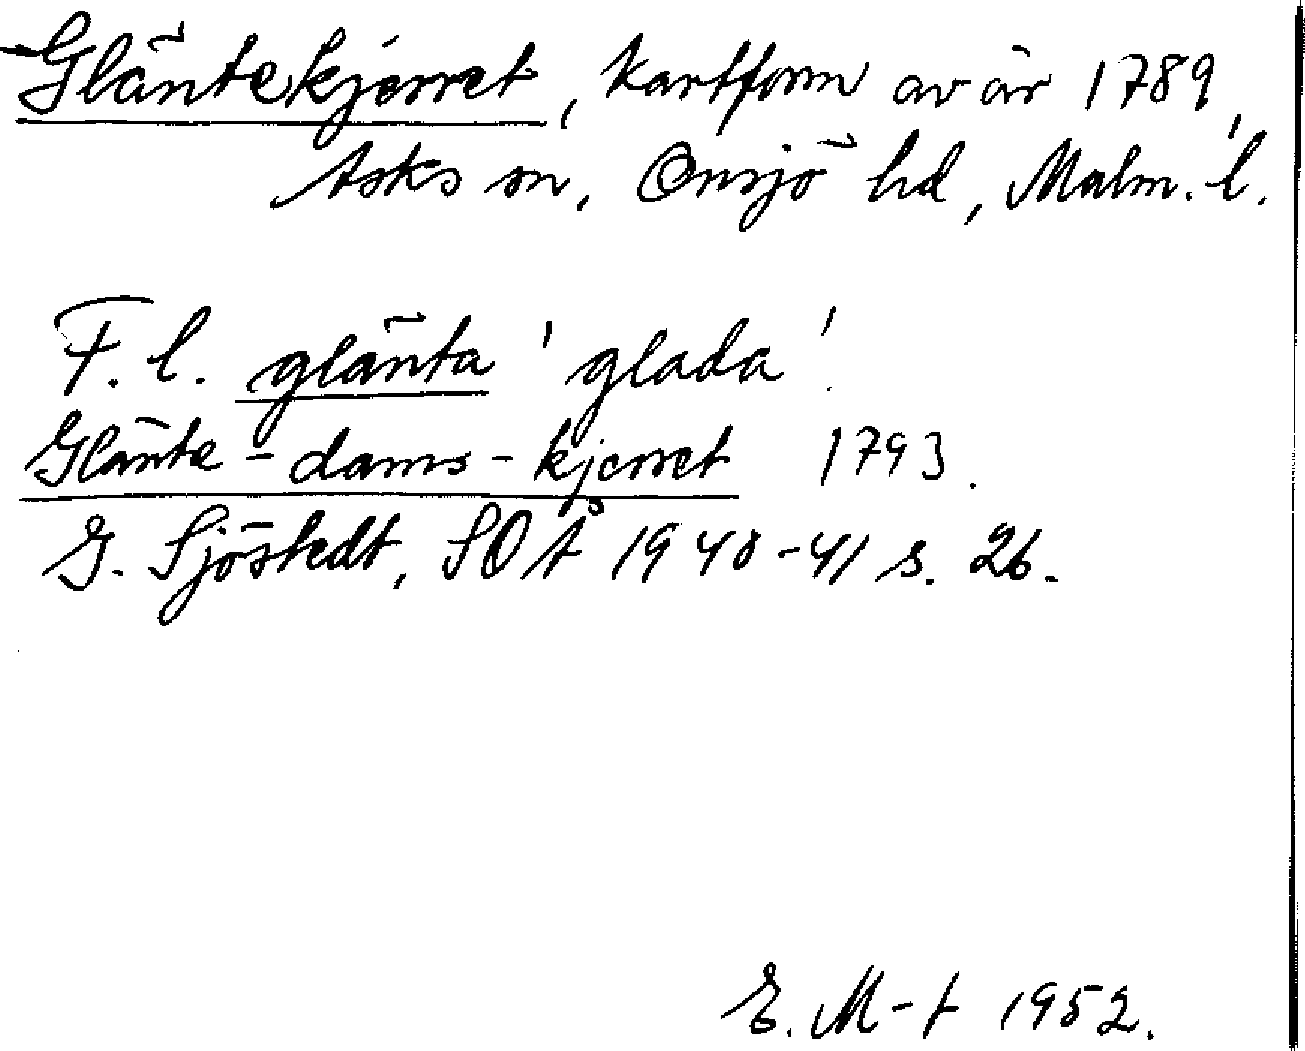 Gläntekjerret, kartform av år 1789,
Asks sn, Onsjö hd, Malm. l.
F. l. glänta 'glada'.
Glänte-dams-kjerret 1793.
G. Sjöstedt, SOÅ 1940-41 s. 26.
E. M-t 1952.